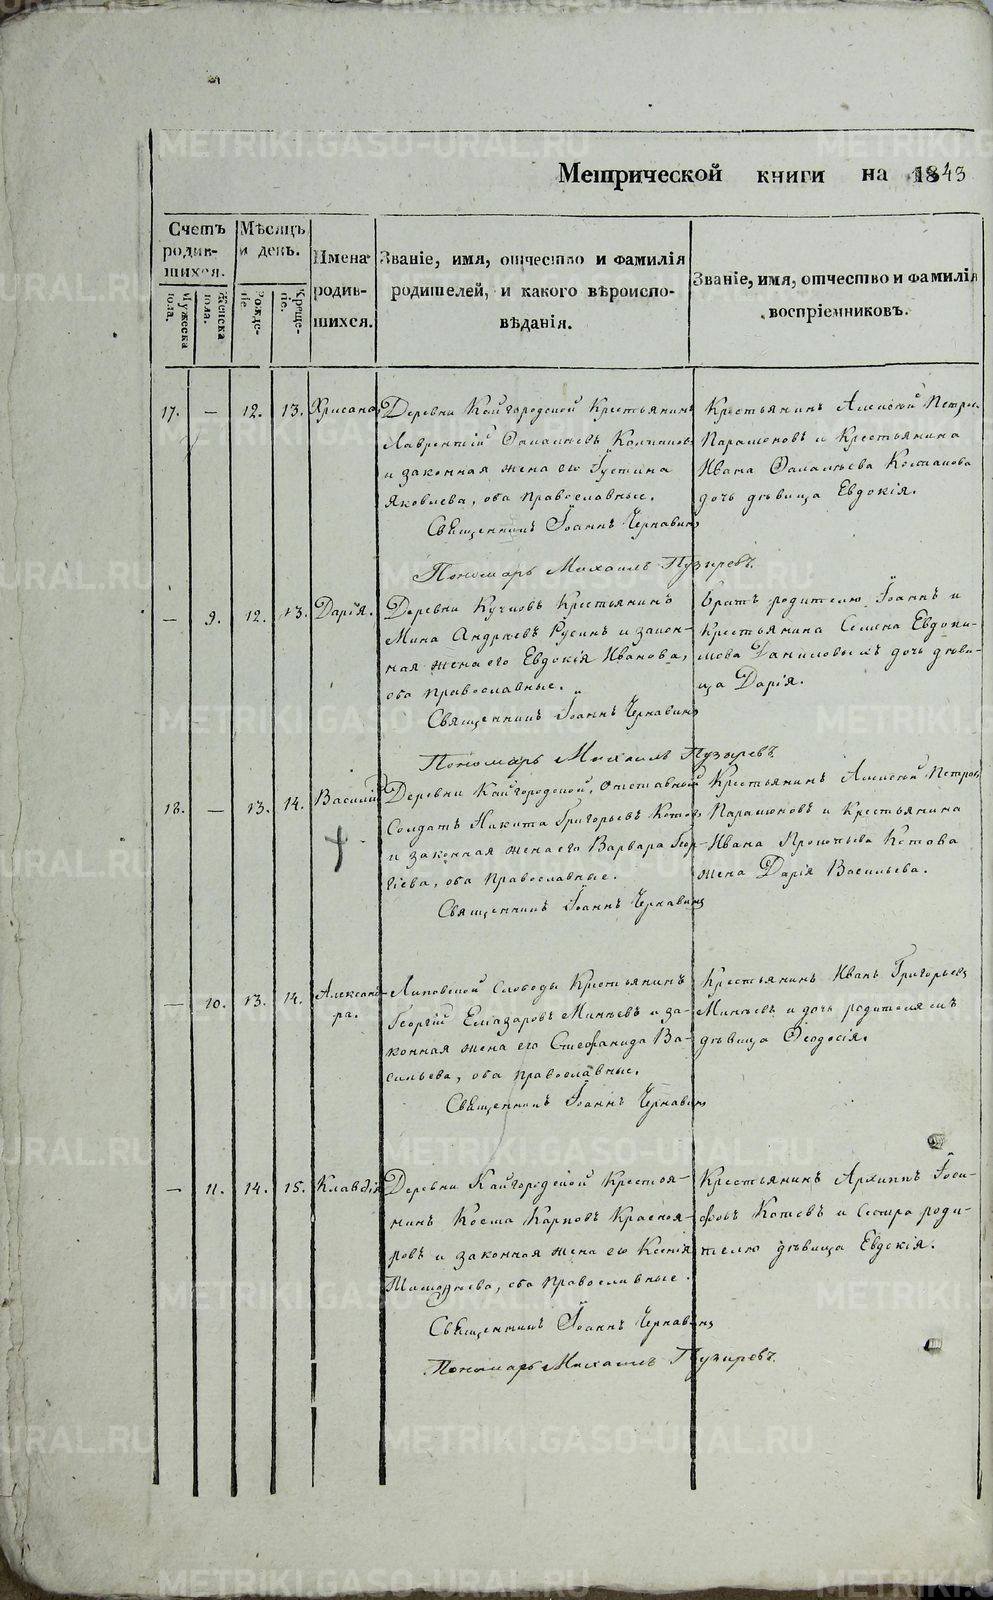 METRIKI.GASO-URAL.RU
Метрической книги на 1843
Счетъ родившихся.
Мужеска пола.
Женска пола.
Мѣсяцъ и день.
Рожденіе.
Крещеніе.
Имена родившихся.
Званіе, имя, отчество и фамилія
родителей, и какого вѣроиспо-
вѣданія.
Званіе, имя, отчество и фамилія
воспріемниковъ.
17. — 12. 13.
Деревни Кайгородской Крестьянинъ
Лаврентій
и законная жена его Іустина
Яковлева, оба православные.
Священникъ Іоаннъ Чернавинъ
Пономарь Михаилъ Пузыревъ.
Крестьянинъ Алексѣй Петровъ
Парамоновъ и Крестьянина
Ивана
дочь дѣвица Евдокія.
— 9. 12. 13. Дарія.
Деревни Крестьянинъ
Мина Андреевъ Русинъ и закон-
ная жена его Евдокія Иванова,
оба православные.
Священникъ Іоаннъ Чернавинъ
Пономарь Михаилъ Пузыревъ.
Братъ родителю Іоаннъ и
Крестьянина Семена Евдоки-
мова Даниловыхъ дочь дѣви-
ца Дарія.
18. — 13. 14. Василій
Деревни Кайгородской, Отставной
Солдатъ Никита Григорьевъ Котовъ
и законная жена его Варвара Геор-
гіева, оба православные.
Священникъ Іоаннъ Чернавинъ
Крестьянинъ Алексѣй Петровъ
Парамоновъ и Крестьянина
Ивана Прокопьева Котова
жена Дарія Васильева.
— 10. 13. 14. Александ-
ра.
Липовской Слободы Крестьянинъ
Георгій Елизаровъ Минѣевъ и за-
конная жена его Стефанида Ва-
сильева, оба православные.
Священникъ Іоаннъ Чернавинъ
Крестьянинъ Иванъ Григорьевъ
Минѣевъ и дочь родителямъ
дѣвица Ѳеодосія.
— 11. 14. 15. Клавдія
Деревни Кайгородской Крестья-
нинъ Косма Карповъ Краснояр-
ровъ и законная жена его Ксенія
Тимофѣева, оба православные.
Священникъ Іоаннъ Чернавинъ
Пономарь Михаилъ Пузыревъ.
Крестьянинъ Архиппъ Іоси-
фовъ Котовъ и Сестра роди-
телю дѣвица Евдокія.